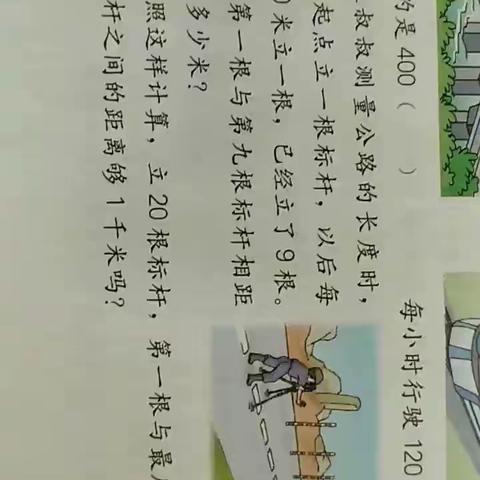 的是400（ ）
叔叔测量公路的长度时，
起点立一根标杆，以后每
0米立一根，已经立了9根。
第一根与第九根标杆相距
多少米？
照这样计算，立20根标杆，第一根与最
杆之间的距离够1千米吗？
每小时行驶120